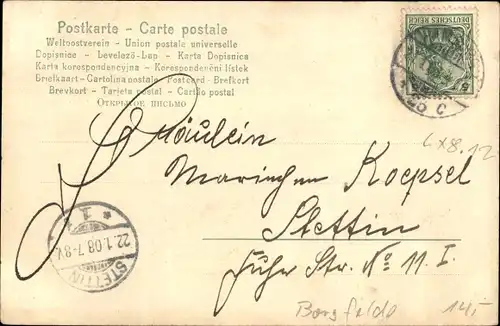 Postkarte - Carte postale
Weltpostverein - Union postale universelle
Dopisnice - Levelező-Lap - Karta Dopisnica
Karta korespondencyjna - Korespondenční lístek
Briefkaart - Cartolina postale - Postcard - Brefkort
Brevkort - Tarjeta postal - Cartão postal
Открытое письмо
DEUTSCHES REICH
5 5
Fräulein
Lx8.12
Mariechen Koepsel
Stettin
Fuhr Str. No 11. I.
STETTIN
1
22.1.08.7-8V.
Borgfelde 14,-